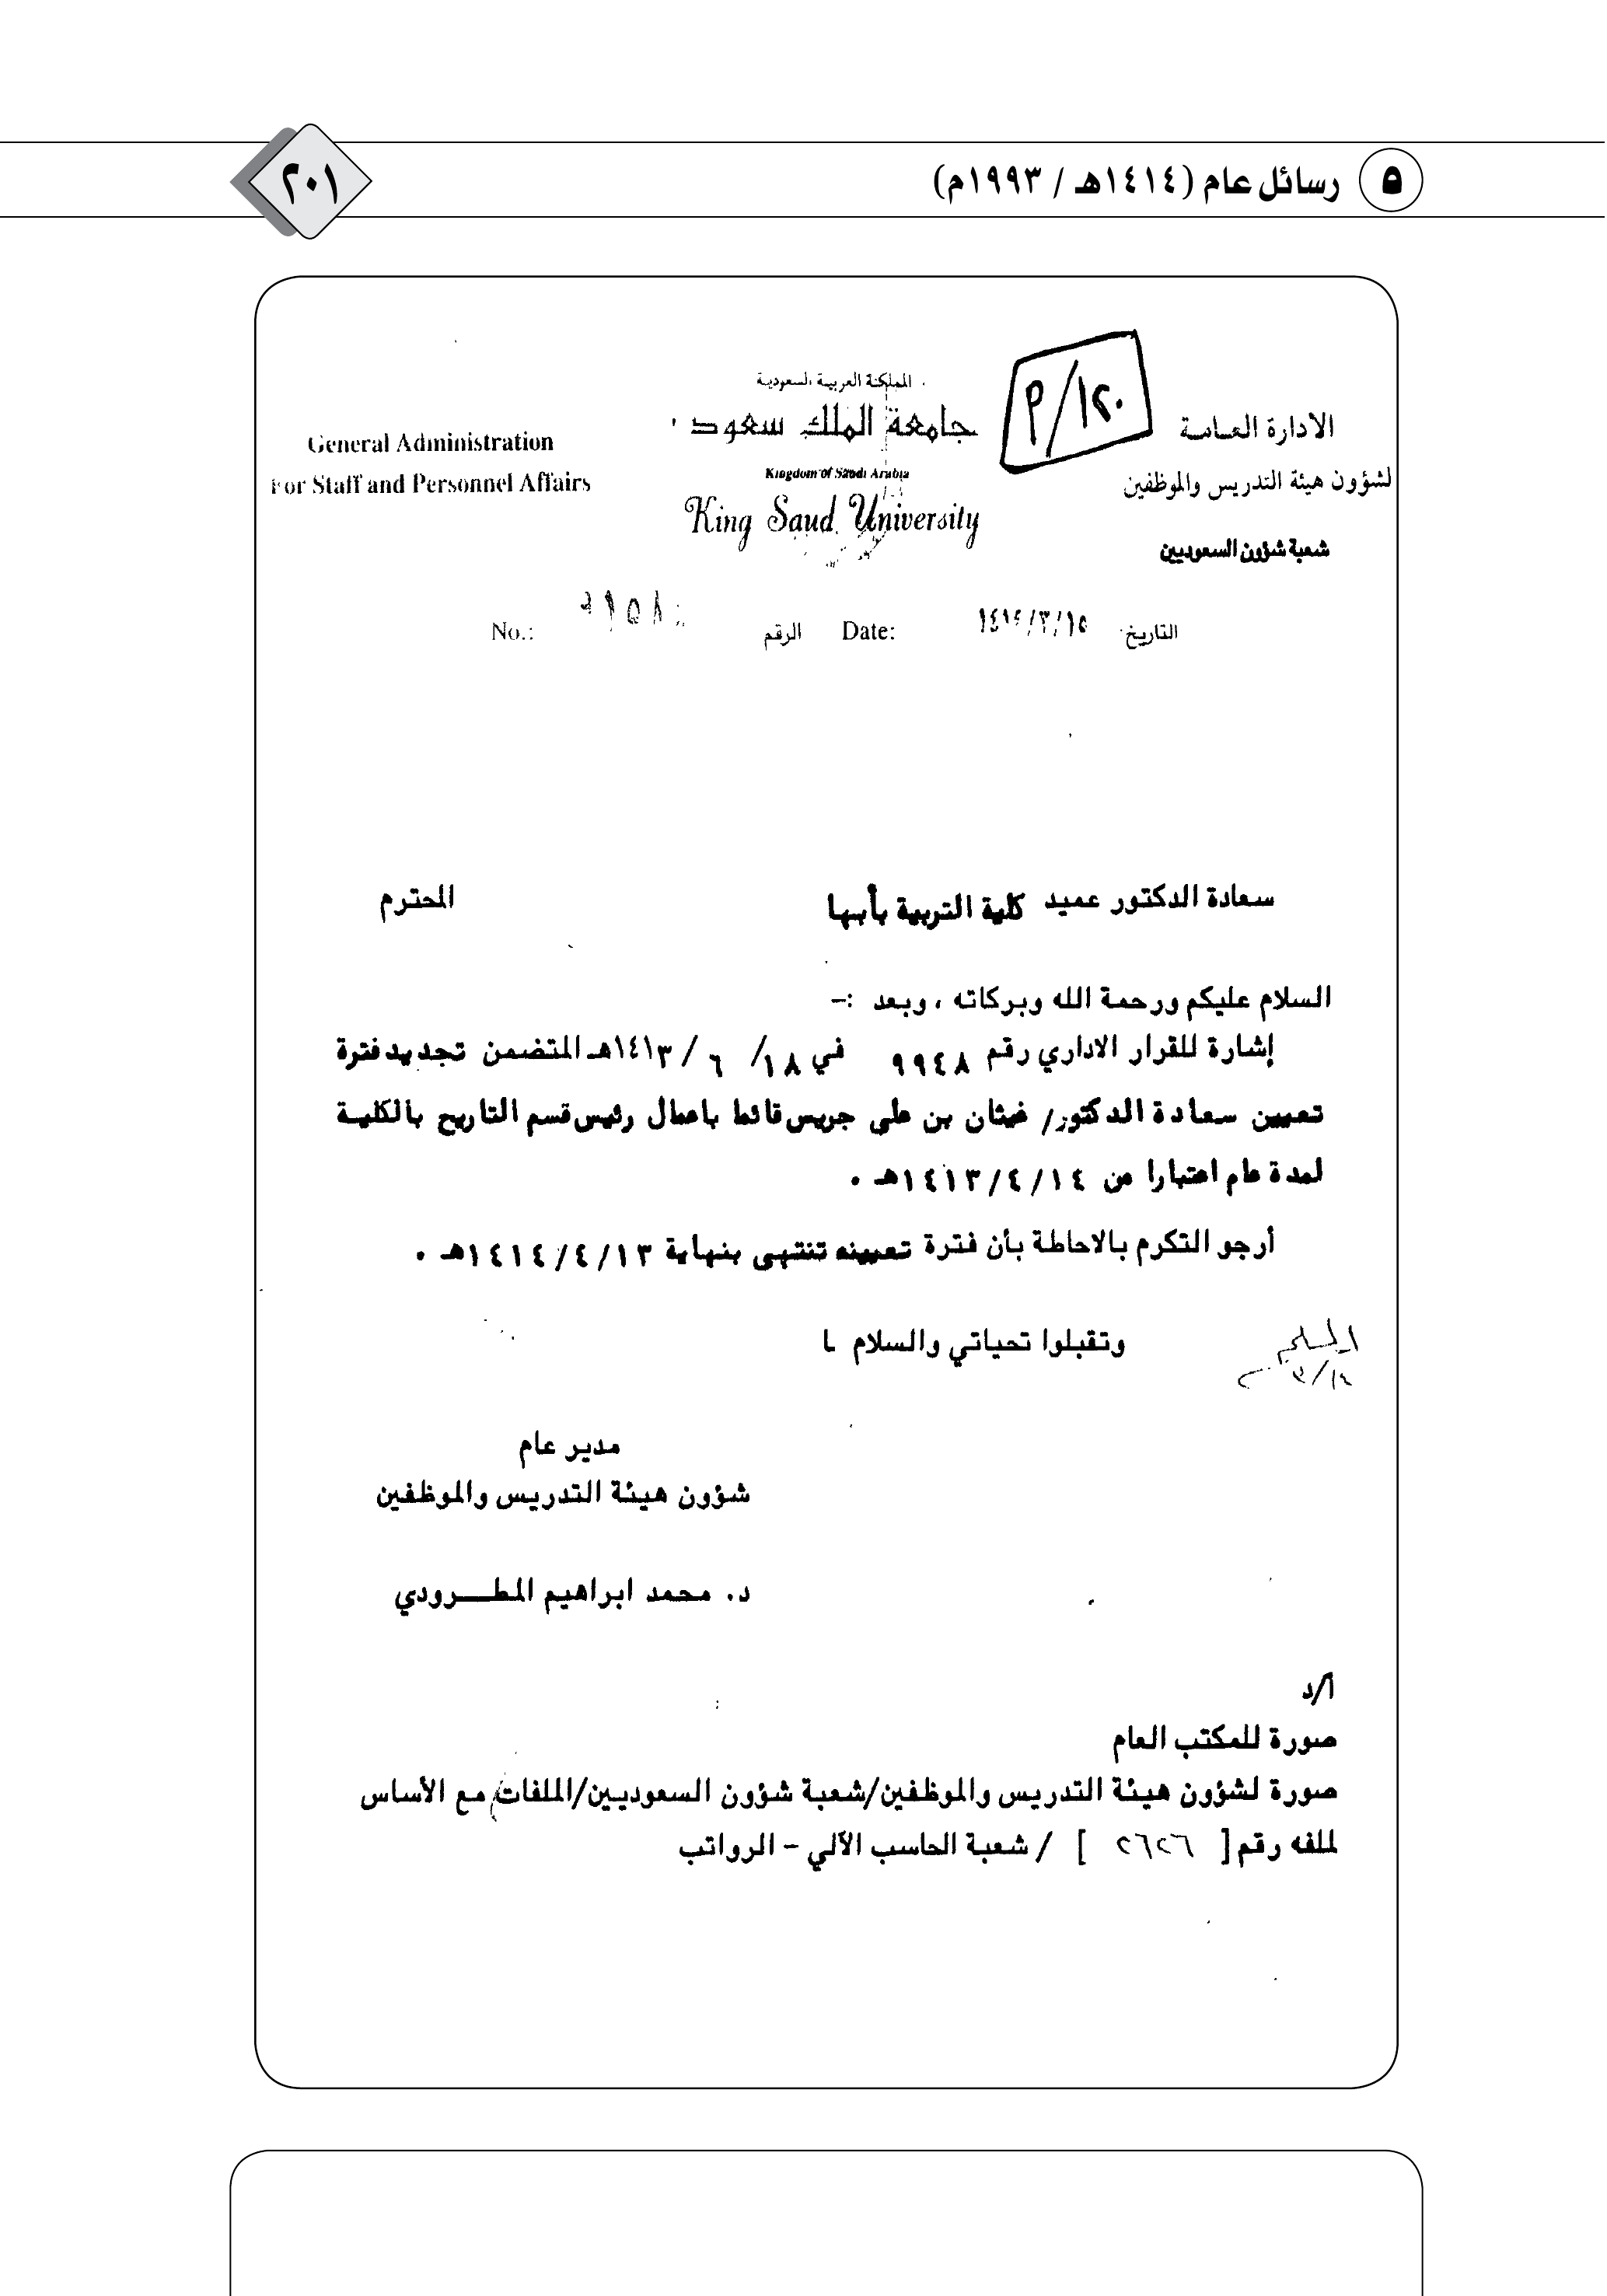 ٥ رسائل عام (١٤١٤هـ / ١٩٩٣م)
٢٠١
المملكة العربية السعودية
جامعة الملك سعود
Kingdom of Saudi Arabia
King Saud University
١٢٠/م
الادارة العامة
لشؤون هيئة التدريس والموظفين
شعبة شؤون السعوديين
General Administration
For Staff and Personnel Affairs
التاريخ
Date:
الرقم
No.:
سعادة الدكتور عميد كلية التربية بأبها المحترم
السلام عليكم ورحمة الله وبركاته ، وبعد :-
إشارة للقرار الاداري رقم ٩٩٤٨ في ١٨/ ٦ /١٤١٣هـ المتضمن تجديد فترة
تعيين سعادة الدكتور/ غيثان بن علي جريس قائما باعمال رئيس قسم التاريخ بالكلية
لمدة عام اعتبارا من ١٤/٤/١٤١٣هـ ٠
أرجو التكرم بالاحاطة بأن فترة تعيينه تنتهي بنهاية ١٣/٤/١٤١٤هـ ٠
وتقبلوا تحياتي والسلام
مدير عام
شؤون هيئة التدريس والموظفين
د. محمد ابراهيم المطـــرودي
أ/د
صورة للمكتب العام
صورة لشؤون هيئة التدريس والموظفين/شعبة شؤون السعوديين/الملفات مع الأساس
لملفه رقم [ ٢٦٢٦ ] / شعبة الحاسب الآلي - الرواتب